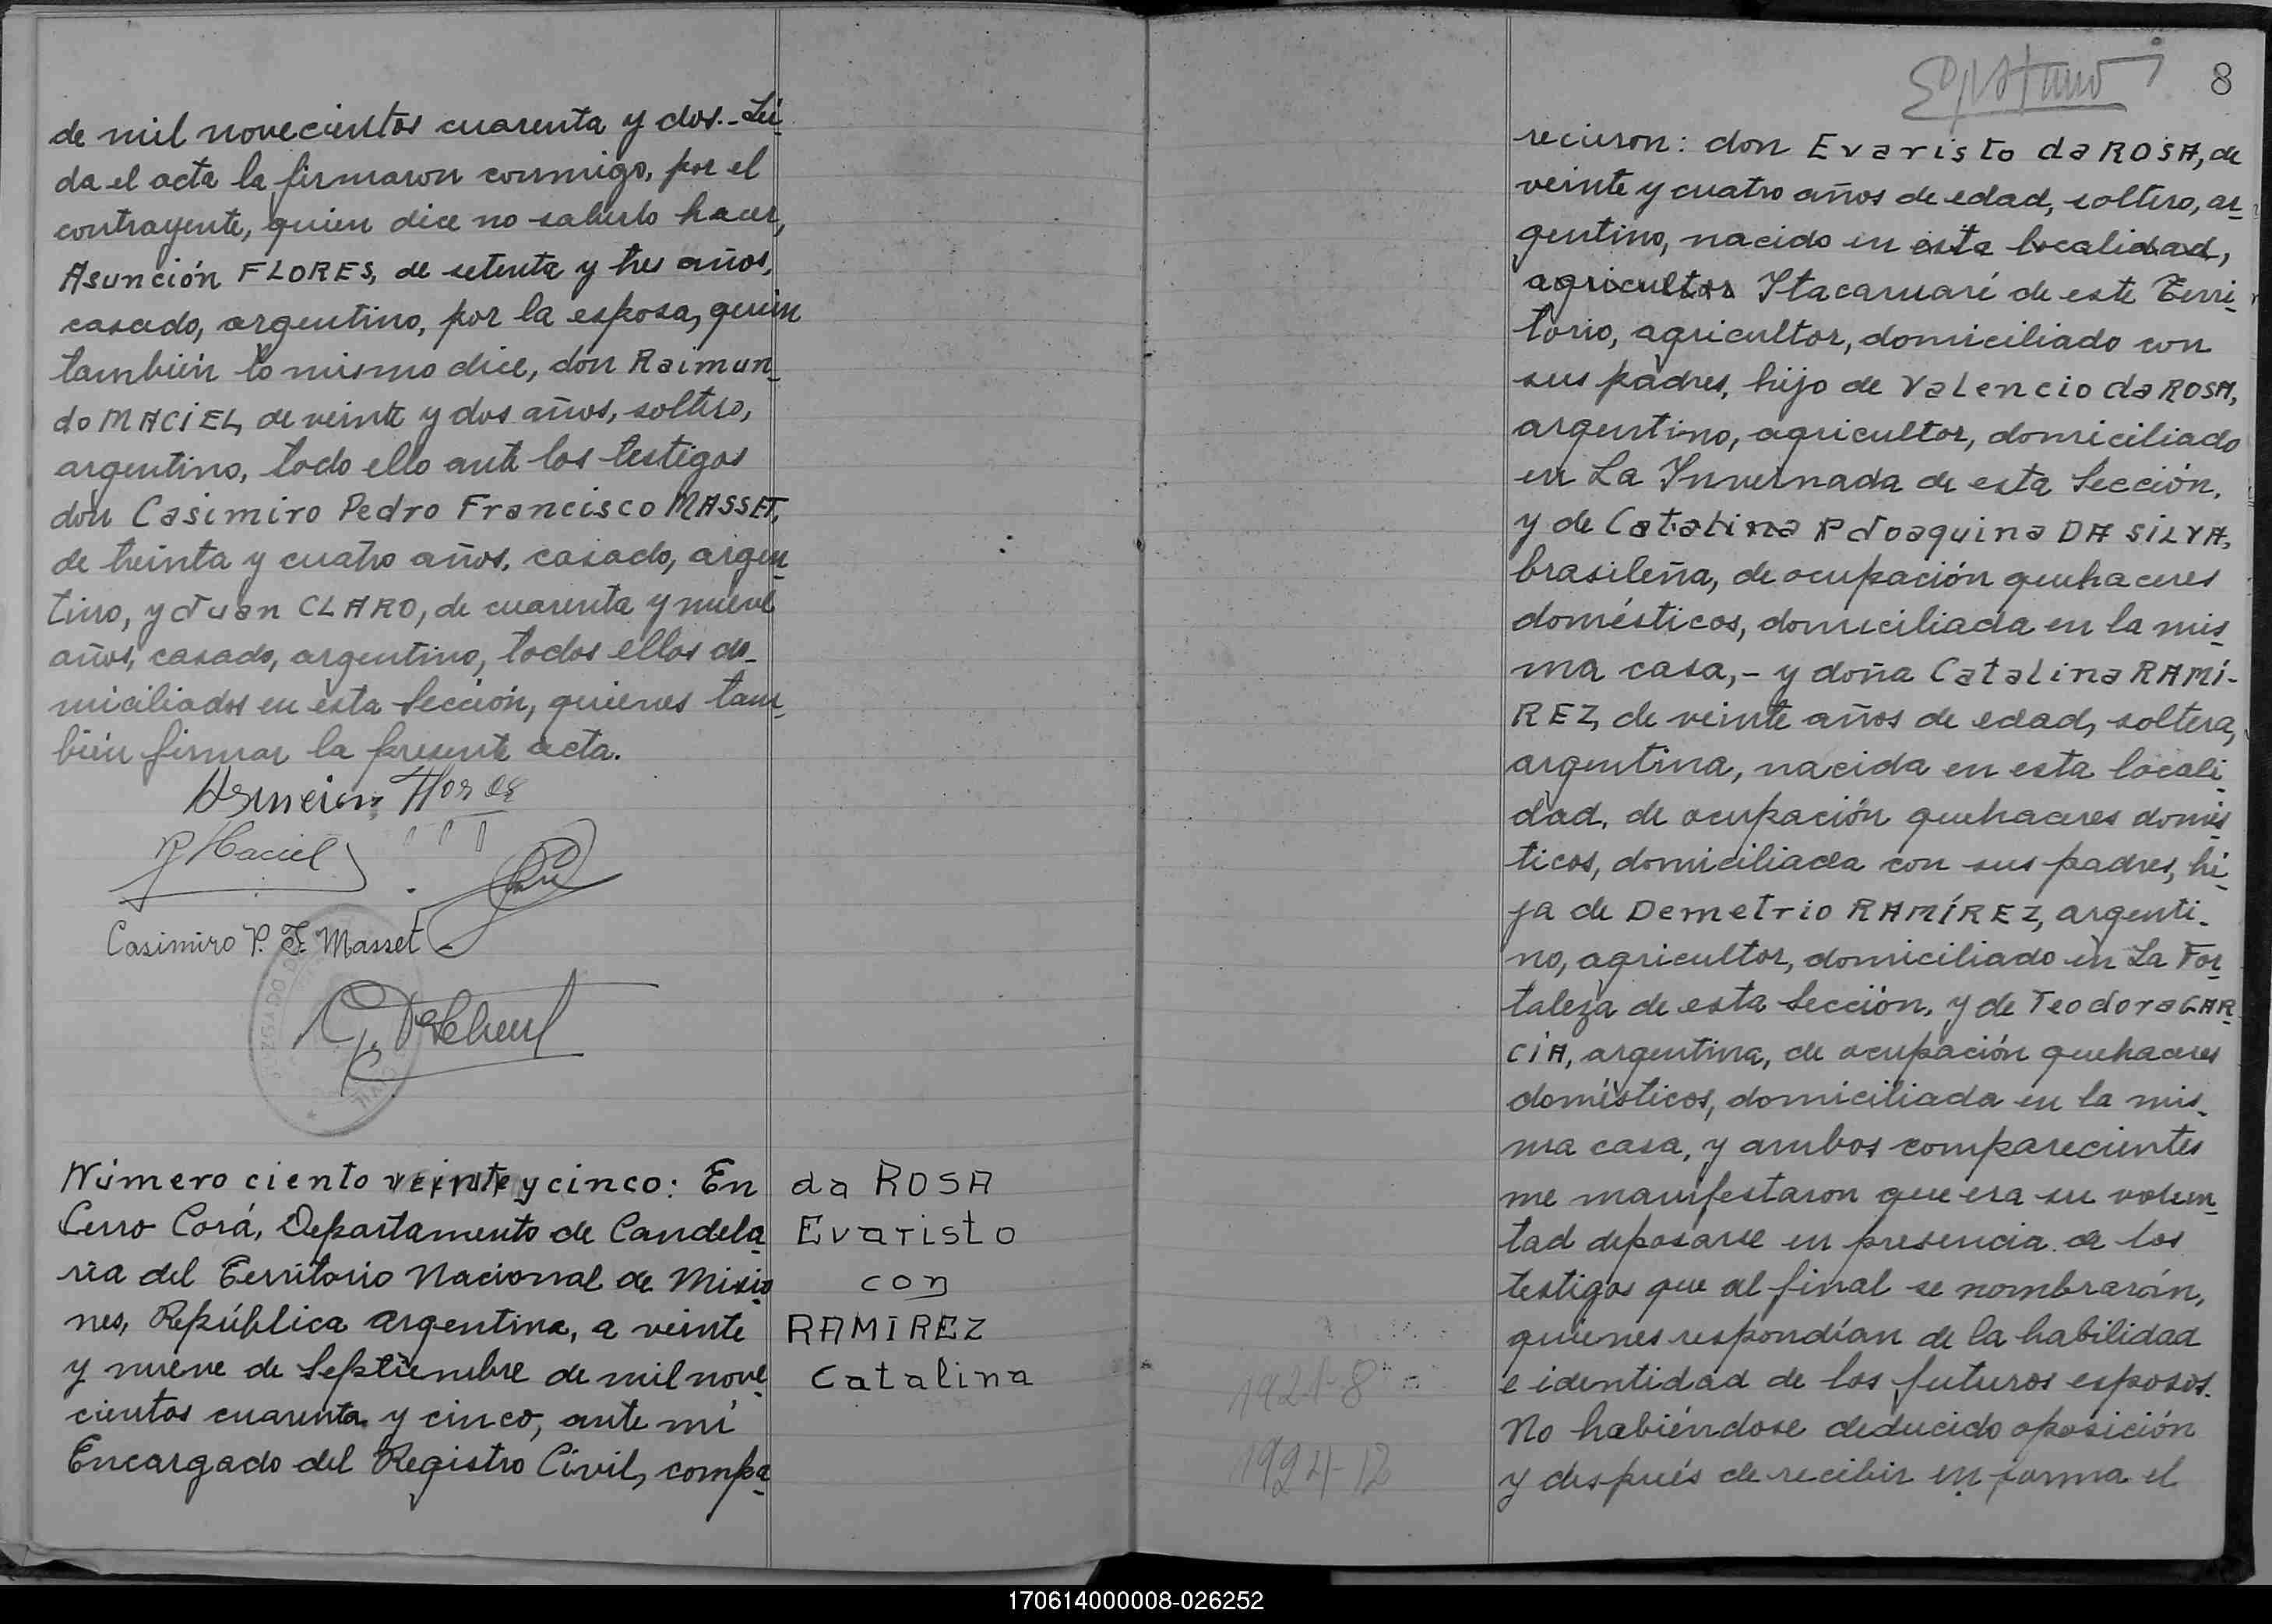 de mil novecientos cuarenta y dos.- Leí-
da el acta la firmaron conmigo, por el
contrayente, quien dice no saberlo hacer,
Asunción FLORES, de setenta y tres años,
casado, argentino, por la esposa, quien
también lo mismo dice, don Raimun-
do MACIEL, de veinte y dos años, soltero,
argentino, todo ello ante los testigos
don Casimiro Pedro Francisco MASSET,
de treinta y cuatro años, casado, argen-
tino, y Juan CLARO, de cuarenta y nueve
años, casado, argentino, todos ellos do-
miciliados en esta Sección, quienes tam-
bién firmar la presente acta.
Asuncion Flores
R Maciel
Casimiro P. F. Masset
Número ciento veinte y cinco: En
Cerro Corá, Departamento de Candela-
ria del Territorio Nacional de Misio-
nes, República Argentina, a veinte
y nueve de Septiembre de mil nove-
cientos cuarenta y cinco, ante mí
Encargado del Registro Civil, compa-
da ROSA
Evaristo
con
RAMIREZ
Catalina
8
recieron: don Evaristo da ROSA, de
veinte y cuatro años de edad, soltero, ar-
gentino, nacido en esta localidad,
agricultor Itacaruaré de este Terri-
torio, agricultor, domiciliado con
sus padres, hijo de Valencio da ROSA,
argentino, agricultor, domiciliado
en La Invernada de esta Sección,
y de Catalina Joaquina DA SILVA,
brasileña, de ocupación quehaceres
domésticos, domiciliada en la mis-
ma casa,- y doña Catalina RAMÍ-
REZ, de veinte años de edad, soltera,
argentina, nacida en esta locali-
dad, de ocupación quehaceres domés-
ticos, domiciliada con sus padres, hi-
ja de Demetrio RAMÍREZ, argenti-
no, agricultor, domiciliado en La For-
taleza de esta Sección, y de Teodora GAR-
CÍA, argentina, de ocupación quehaceres
domésticos, domiciliada en la mis-
ma casa, y ambos comparecientes
me manifestaron que era su volun-
tad deposarse en presencia de los
testigos que al final se nombrarán,
quienes respondían de la habilidad
e identidad de los futuros esposos.
No habiéndose deducido oposición
y después de recibir en forma el
1921-8
1924-12
170614000008-026252